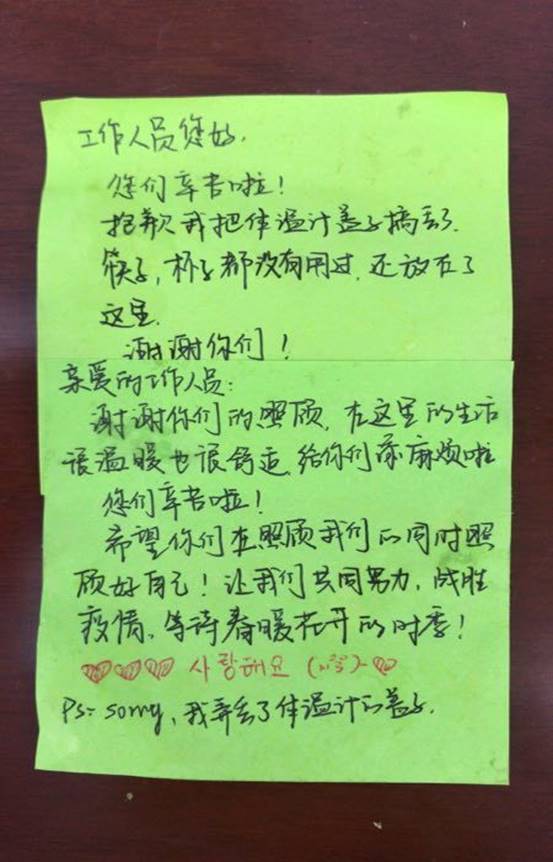 工作人员您好.
您们辛苦啦!
抱歉我把体温计盖子搞丢了.
筷子,杯子都没有用过,还放在了
这里.
谢谢你们!
亲爱的工作人员:
谢谢你们的照顾,在这里的生活
很温暖也很舒适,给你们添麻烦啦
您们辛苦啦!
希望你们在照顾我们的同时照
顾好自己!让我们共同努力,战胜
疫情,等待春暖花开的时季!
사랑해요
Ps: sorry,我弄丢了体温计的盖子.